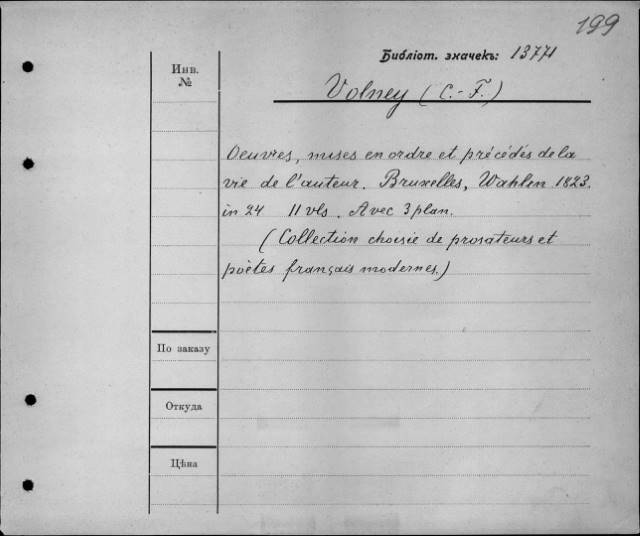 199
Библіот. значекъ: 13771
Инв.
№
Volney (C.-F.)
Oeuvres, mises en ordre et précédés de la
vie de l'auteur. Bruxelles, Wahlen 1823.
in 24 11 vls. Avec 3 plan.
(Collection choisie de prosateurs et
poètes français modernes.)
По заказу
Откуда
Цѣна